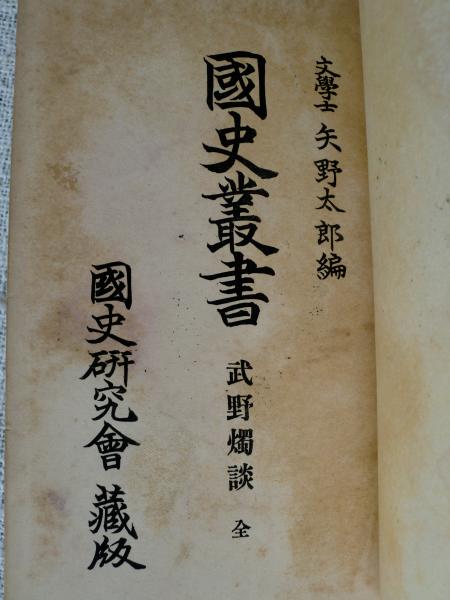 文學士 矢野太郎編
國史叢書 武野燭談 全
國史研究會藏版